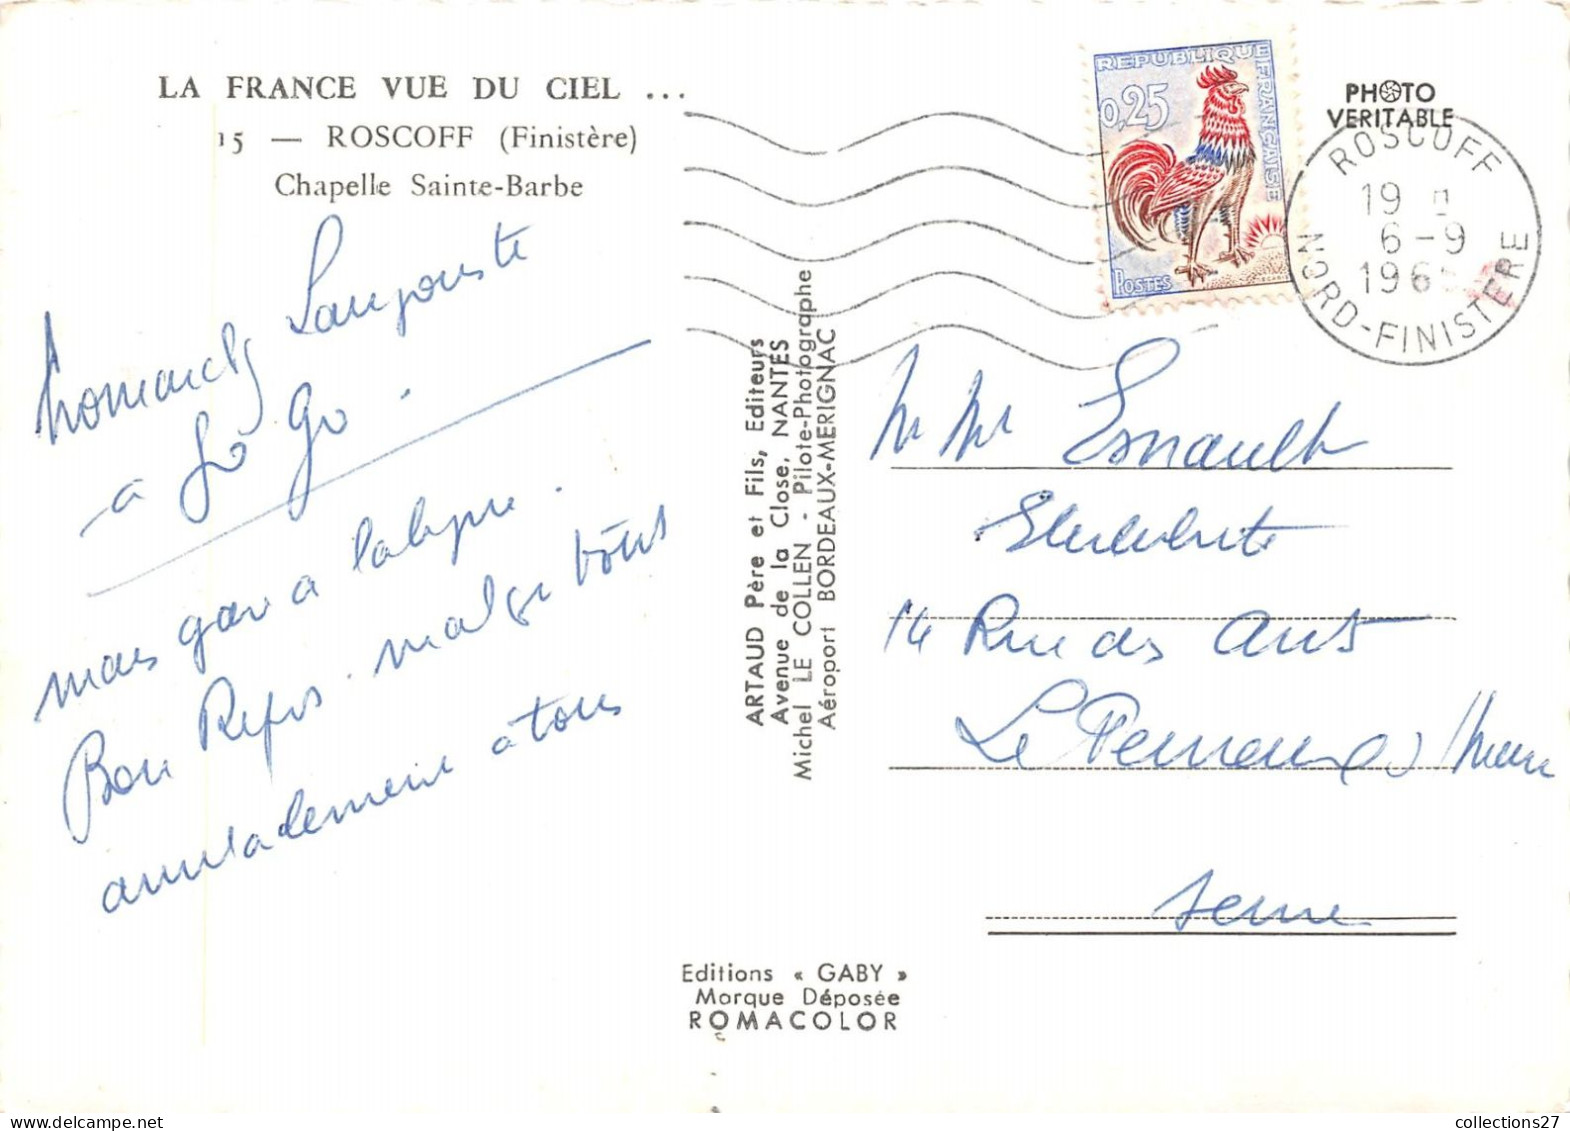 LA FRANCE VUE DU CIEL ...
15 — ROSCOFF (Finistère)
Chapelle Sainte-Barbe
homards Langouste
à gogo.
mais gare à la
Bon Repos. malgré tout
amicalement à tous
ARTAUD Père et Fils, Editeurs
Avenue de la Close, NANTES
Michel LE COLLEN - Pilote-Photographe
Aéroport BORDEAUX-MERIGNAC
REPUBLIQUE FRANÇAISE
0,25
POSTES
PHOTO
VERITABLE
ROSCOFF
19
6-9
196
NORD-FINISTERE
Esnault
14 Rue des
Le Perreux s/
Seine
Editions « GABY »
Marque Déposée
ROMACOLOR
collections27